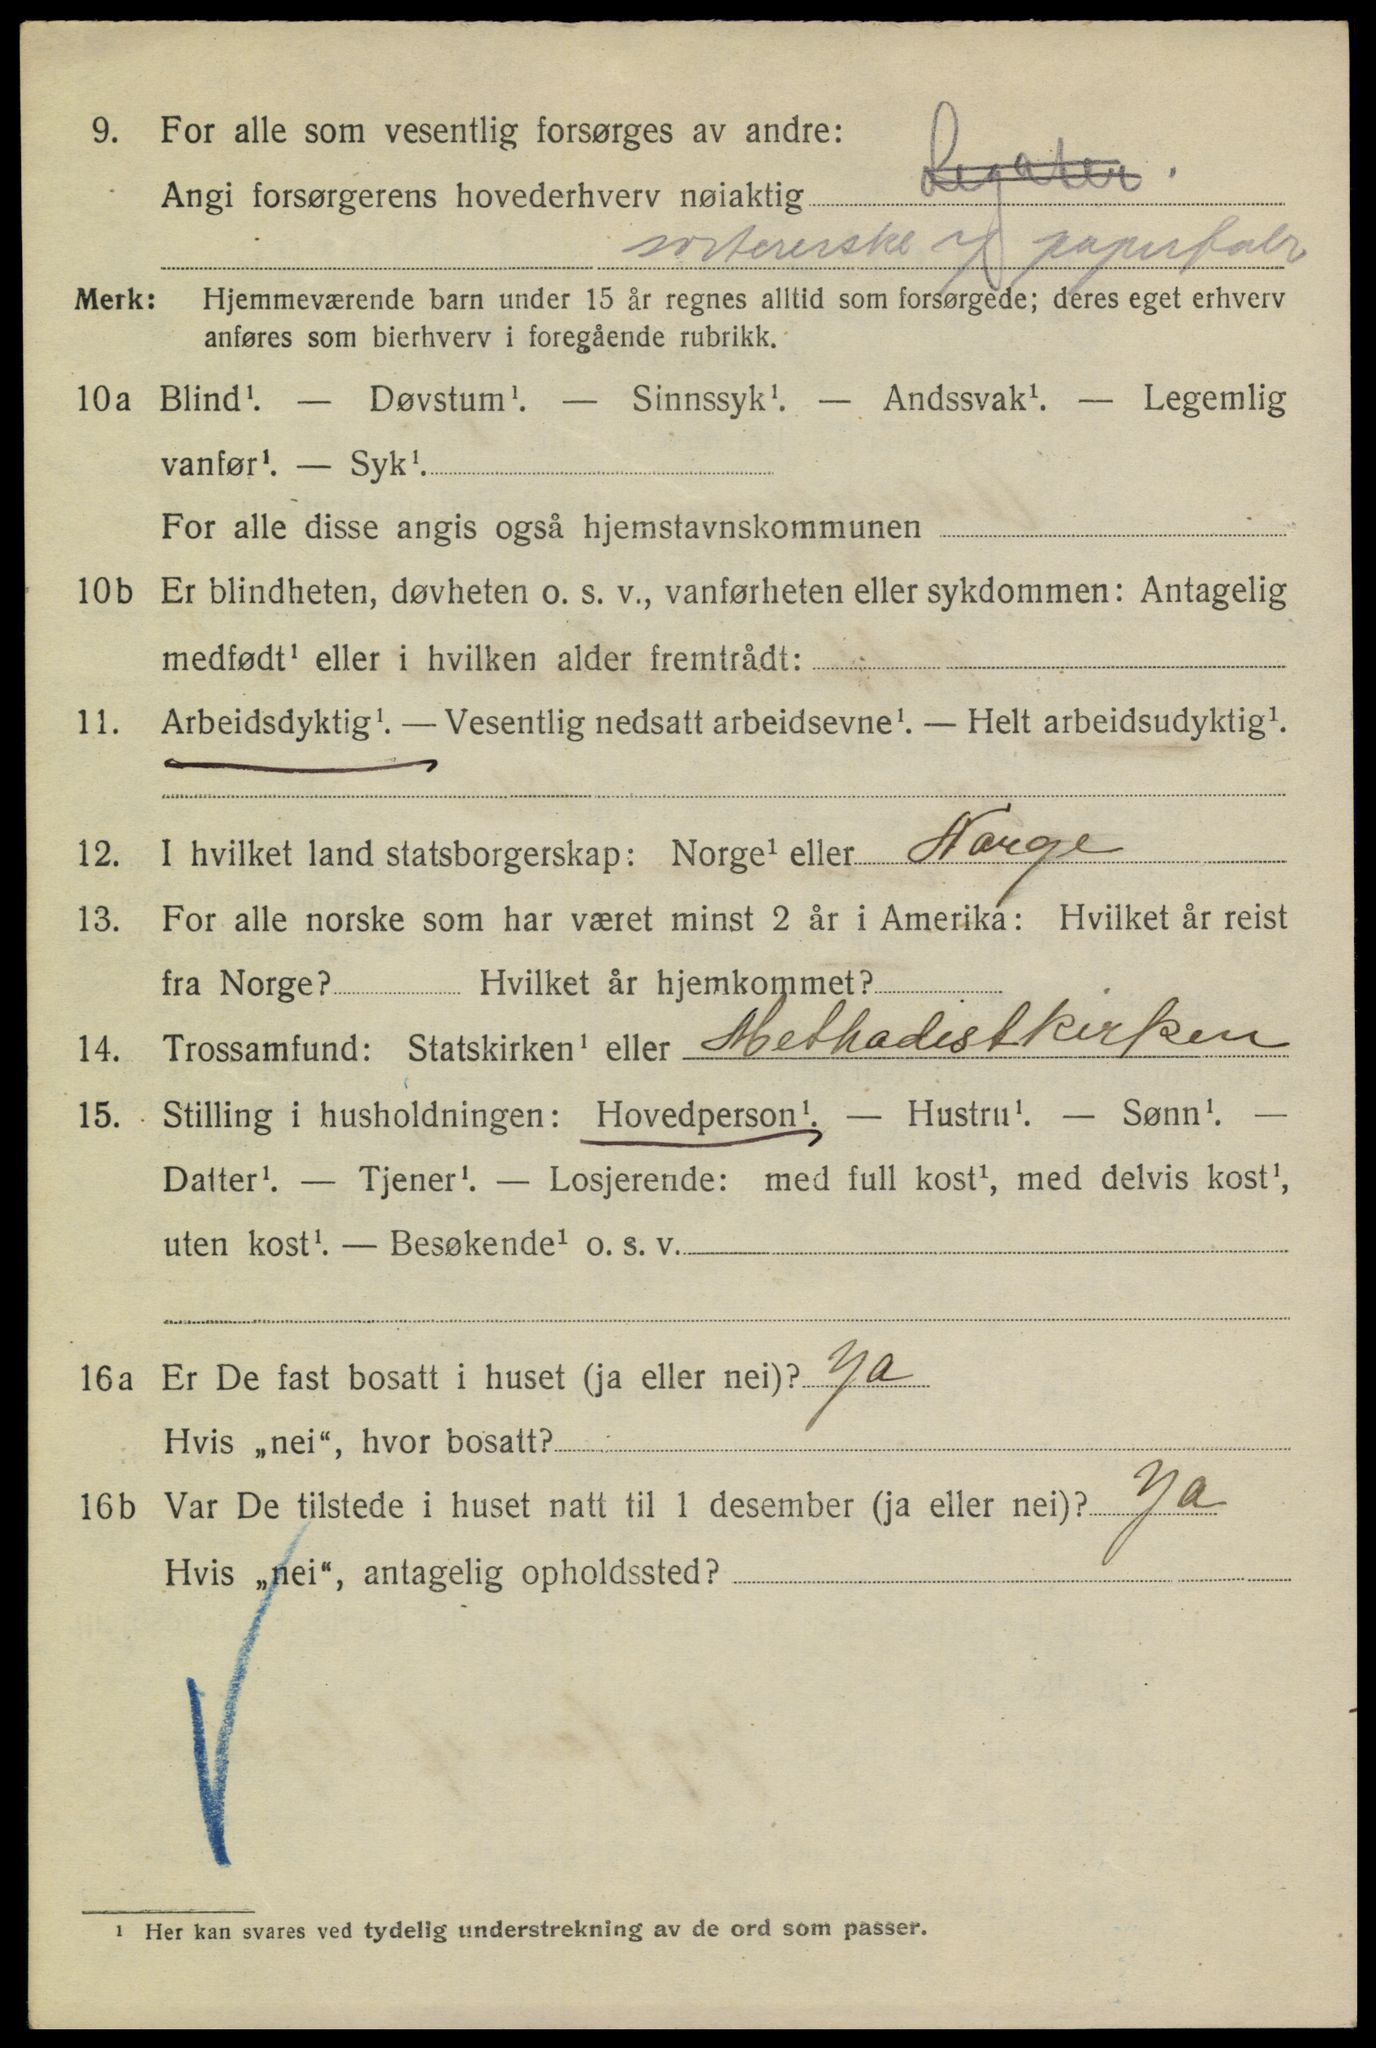 9. For alle som vesentlig forsørges av andre:
Angi forsørgerens hovederhverv nøiaktig Legater.
sortererske papirfabr
Merk: Hjemmeværende barn under 15 år regnes alltid som forsørgede; deres eget erhverv
anføres som bierhverv i foregående rubrikk.
10a Blind¹. — Døvstum¹. — Sinnssyk¹. — Andssvak¹. — Legemlig
vanfør¹. — Syk¹.
For alle disse angis også hjemstavnskommunen
10b Er blindheten, døvheten o. s. v., vanførheten eller sykdommen: Antagelig
medfødt¹ eller i hvilken alder fremtrådt:
11. Arbeidsdyktig¹. — Vesentlig nedsatt arbeidsevne¹. — Helt arbeidsudyktig¹.
12. I hvilket land statsborgerskap: Norge¹ eller Norge
13. For alle norske som har været minst 2 år i Amerika: Hvilket år reist
fra Norge? Hvilket år hjemkommet?
14. Trossamfund: Statskirken¹ eller Methodistkirken
15. Stilling i husholdningen: Hovedperson¹. — Hustru¹. — Sønn¹. —
Datter¹. — Tjener¹. — Losjerende: med full kost¹, med delvis kost¹,
uten kost¹. — Besøkende¹ o. s. v.
16a Er De fast bosatt i huset (ja eller nei)? Ja
Hvis „nei“, hvor bosatt?
16b Var De tilstede i huset natt til 1 desember (ja eller nei)? Ja
Hvis „nei“, antagelig opholdssted?
¹ Her kan svares ved tydelig understrekning av de ord som passer.